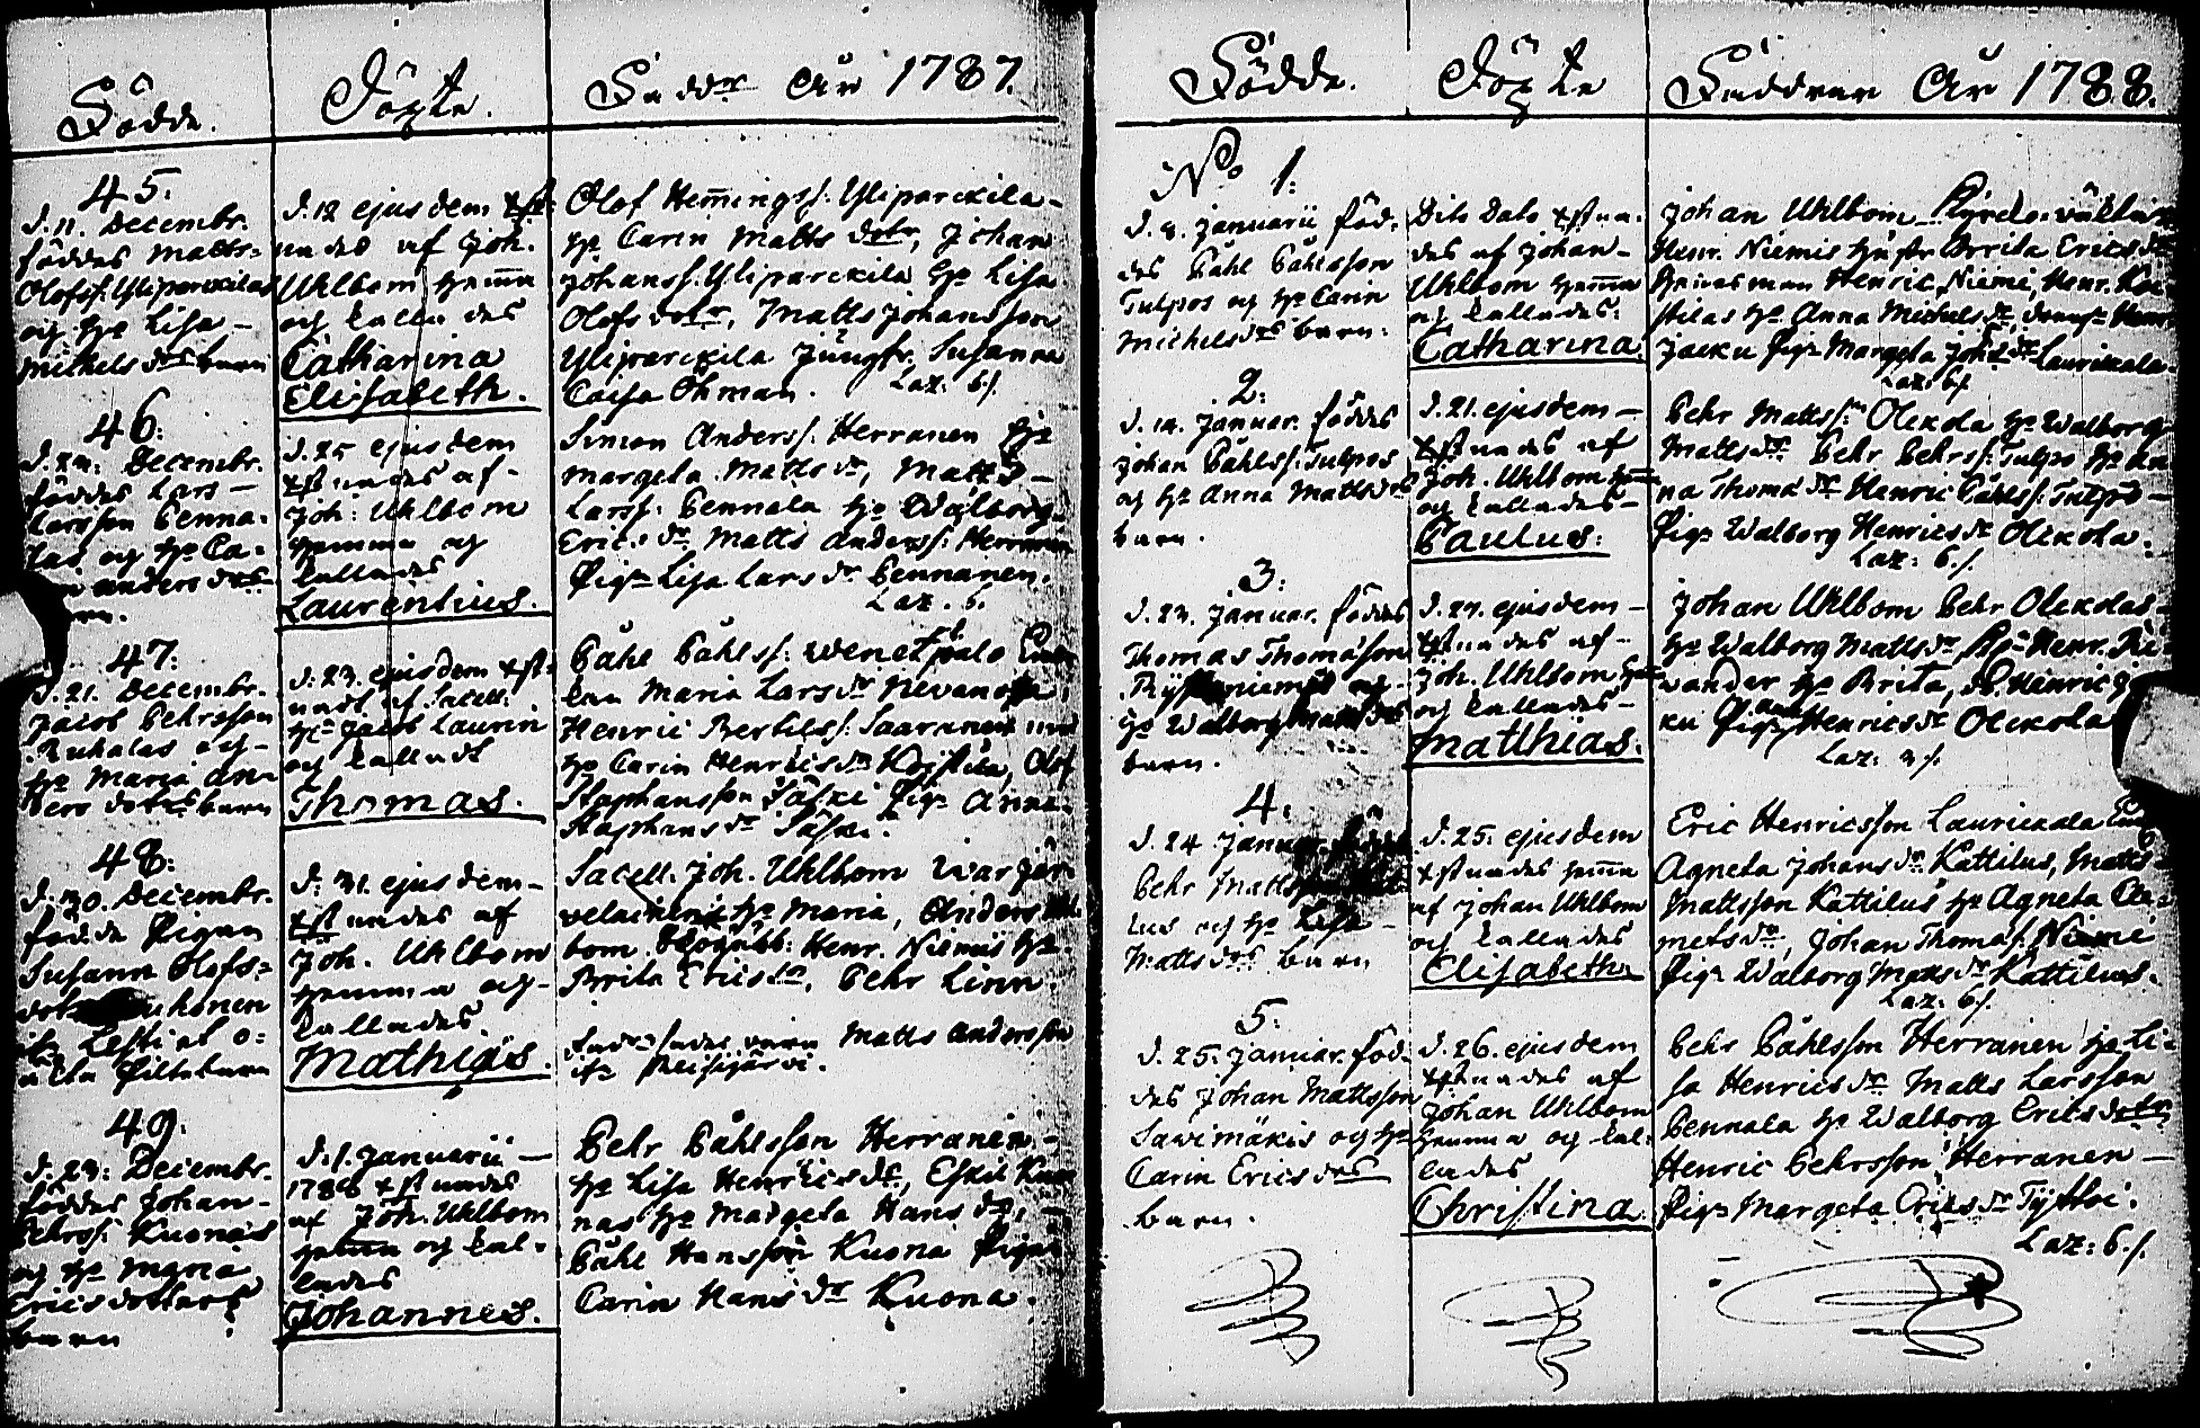 Födde.
Döpte.
Faddr År 1787.
45:
d. 11. Decembr.
föddes Matts
Olofss. Yliparckilas
och H:o Lisa
Michels drs barn
d. 12 ejusdem Xst-
nades af Joh.
Uhlbom hemma
och kallades
Catharina
Elisabeth.
Olof Hemingss. Yliparckila
H:o Carin Matts dotr, Johan
Johanss. Yliparckila H:o Lisa
Olofs dotr, Matts Johansson
Yliparckila Jungfr. Susanna
Caisa Öhman. Laz: 6/.
46:
d. 24: Decembr.
föddes Lars
Larsson Penna-
las och H:o Ca-
anders drs
d. 25 ejusdem
Xstnades af
Joh: Uhlbom
hemma och
kallades
Laurentius.
Simon Anderss. Herranen H:o
Margeta Matts dr, Matts
Larss. Pennala H:o Walborg
Erics dr Matts Anderss. Herranen
Pig: Lisa Lars dr Pennanen.
Laz. 6.
47:
d. 21. Decembr.
Jacob Pehrsson
Ruhalas och
H:o Maria An-
ders dotrs barn
d: 23. ejusdem Xst-
nades af Sacell.
H:r Jacob Laurin
och kallades
Thomas.
Påhl Påhlss: Wenetpalo
Maria Lars dr Nevanoja
Henric Bertilss. Saaranen
H:o Carin Henrics dr Köpsilä, Olof
Staphansson Säski Pig: Anna
Staphans dr Säski.
48:
d: 30. Decembr.
födde Pigan
Susanna Olofs-
ifr. Lesti et o-
ächta Piltebarn
d: 31. ejusdem
Xstnades af
Joh. Uhlbom
hemma och
kallades.
Mathias.
Sacell. Joh. Uhlbom Ivar Jär-
velainen H:o Maria, Anders Uhl-
bom Henr. Niemis H:o
Brita Erics dr, Pehr Linn.
vara Matts Andersson
ifr Reisijärvi.
49:
d. 23: Decembr.
föddes Johan
Pehrss. Kuonas
och H:o Maria
Erics dotters
barn
d. 1. Januarii
1788 Xstnades
af Joh. Uhlbom
hemma och kal-
lades
Johannes.
Pehr Påhlsson Herranen
H:o Lisa Henrics dr, Eskil Kuo-
nas H:o Margeta Hans dr,
Påhl Hansson Kuona Pigan
Carin Hans dr Kuona.
Födde.
Döpte
Faddrar År 1788.
No 1:
d. 8. Januarii föd-
des Påhl Påhlsson
Tulpos och H:o Carin
Michels drs barn.
Dito Dato Xstna-
des af Johan
Uhlbom hemma
och kallades:
Catharina.
Johan Uhlbom Kyrckovächtar
Henr. Niemis Hustr. Brita Erics dr
Henric Niemi, Henr. Kos-
kilas H:o Anna Michels dr,
Jacku Pig: Margeta Johs dr Laurickala
Laz: 6/.
2:
d. 14. Januar. föddes
Johan Påhlss: Tulpos
och H:o Anna Matts drs
barn.
d. 21. ejusdem
Xstnades af
Joh. Uhlbom hem
och kallades
Paulus:
Pehr Mattss: Olckola H:o Walborg
Matts dr Pehr Pehrss: Tulpo H:o An-
na Thoma dr Henric Påhlss: Tulpo
Pig: Walborg Henrics dr Olckola.
Laz: 6./.
3:
d. 23. Januar. föddes
Thomas Thomasson
H:o Walborg Matts drs
barn.
d. 24. ejusdem
Xstnades af
Joh. Uhlbom hem
och kallades
Matthias.
Johan Uhlbom Pehr Olckolas
H:o Walborg Matts dr, Henr. Ki-
vander H:o Brita, Henric Ja-
ku Pig: Anna Henrics dr Olckola
Laz: 4/.
4:
d. 24 Januar. föddes
Pehr Mattsson
lus och H:o Lisa
Matts drs barn
d: 25. ejusdem
Xstnades hemma
af Johan Uhlbom
och kallades
Elisabetha
Eric Henricsson Laurickala
Agneta Johans dr Kattilus, Matts
Mattsson Kattilus H:o Agneta Cle-
mets dr, Johan Thomas. Niemi
Pig: Walborg Matts dr Kattilus.
Laz: 6/.
5:
d. 25. Januar. föd-
des Johan Mattsson
Savimäkis och H:o
Carin Erics drs
barn.
d. 26. ejusdem
Xstnades af
Johan Uhlbom
hemma och kal-
lades
Christina
Pehr Påhlsson Herranen H:o Li-
sa Henrics dr Matts Larsson
Pennala H:o Walborg Erics dotr
Henric Pehrsson Herranen
Pig: Margeta Erics dr Tyttöi.
Laz: 6./.